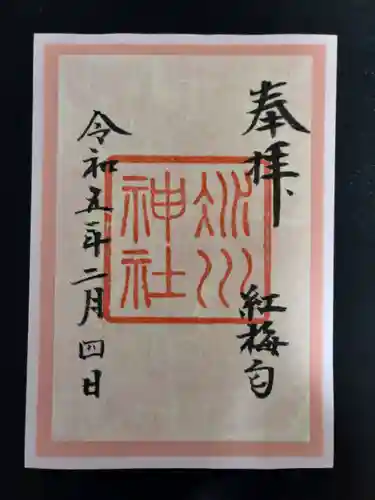 奉拝
紅梅匂
冰川
神社
令和五年二月四日